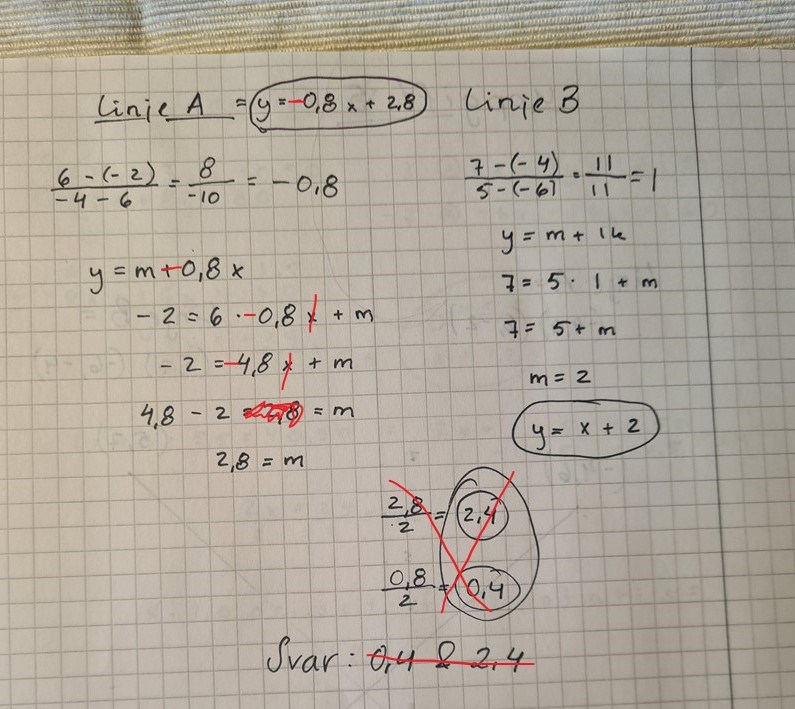 Linje A = y = -0,8 x + 2,8
6 - (-2) / -4 - 6 = 8 / -10 = -0,8
y = m - 0,8 x
- 2 = 6 · -0,8 x + m
- 2 = -4,8 x + m
4,8 - 2 = m
2,8 = m
Linje B
7 - (-4) / 5 - (-6) = 11 / 11 = 1
y = m + 1k
7 = 5 · 1 + m
7 = 5 + m
m = 2
y = x + 2
2,8 / 2 = 2,4
0,8 / 2 = 0,4
Svar: 0,4 & 2,4